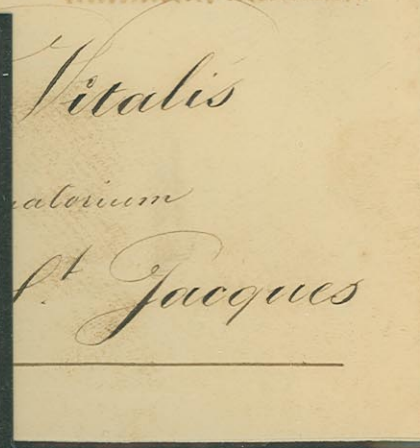 Vitalis
natorium
St Jacques